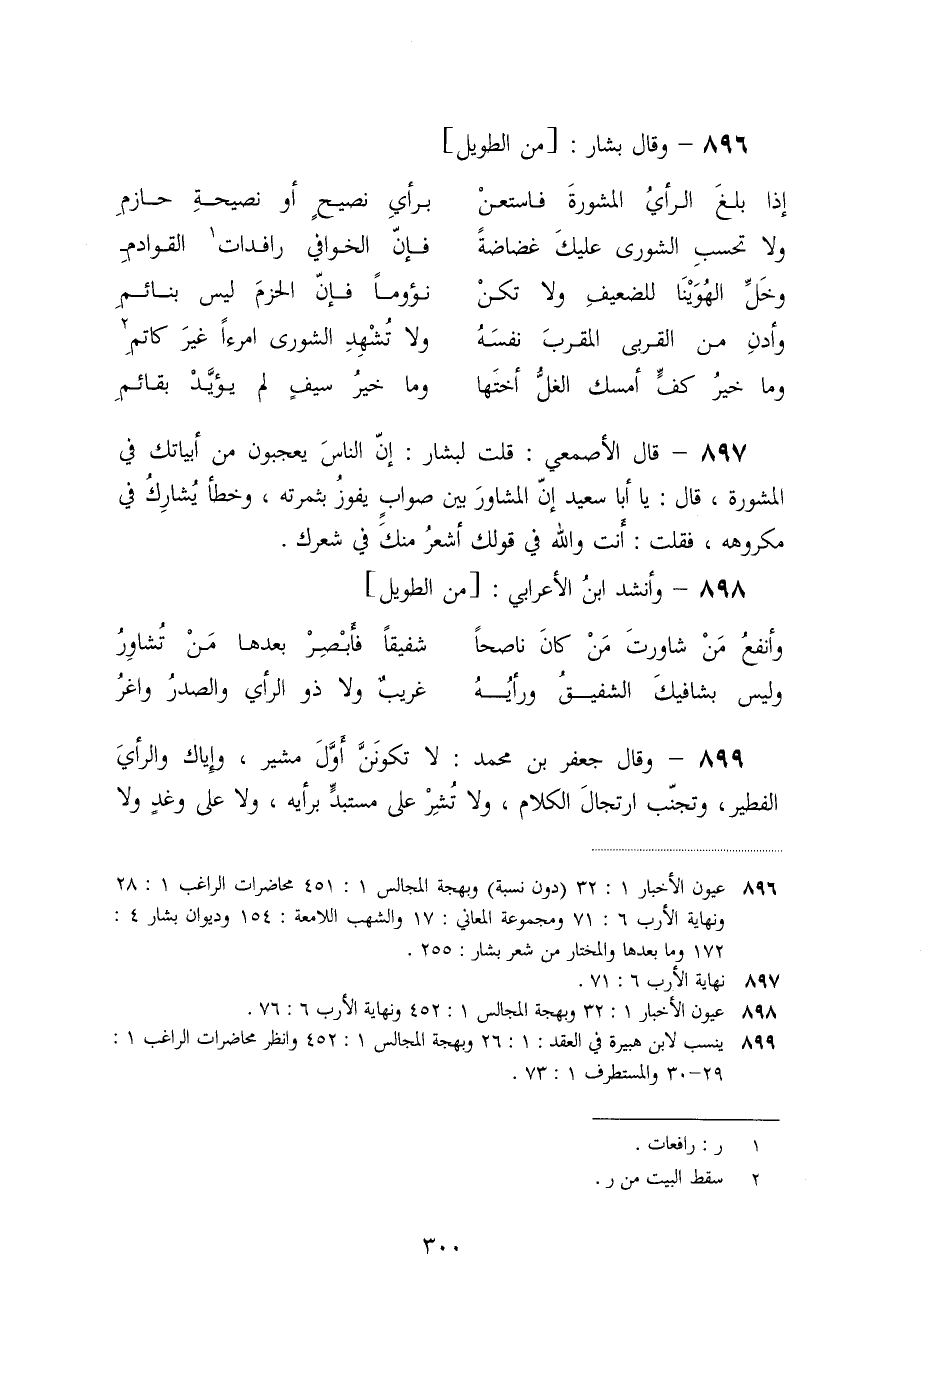 ٨٩٦ – وقال بشار : [من الطويل]
إذا بلغَ الرأيُ المشورةَ فاستعنْ برأيِ نصيحٍ أو نصيحةِ حازمِ
ولا تحسبِ الشورى عليكَ غضاضةً فإنّ الخوافي رافدات١ القوادمِ
وخَلِّ الهُوَيْنَا للضعيفِ ولا تكنْ نؤوماً فإنّ الحزمَ ليس بنائمِ
وأدنِ من القربى المقربَ نفسَهُ ولا تُشْهِدِ الشورى امرءاً غيرَ كاتمِ٢
وما خيرُ كفٍّ أمسك الغلُّ أختَها وما خيرُ سيفٍ لم يؤيَّدْ بقائمِ
٨٩٧ – قال الأصمعي : قلت لبشار : إنّ الناسَ يعجبون من أبياتك في
المشورة ، قال : يا أبا سعيد إنّ المشاورَ بين صوابٍ يفوزُ بثمرته ، وخطأ يُشارِكُ في
مكروهه ، فقلت : أنت والله في قولك أشعرُ منكَ في شعرك .
٨٩٨ – وأنشد ابنُ الأعرابي : [من الطويل]
وأنفعُ مَنْ شاورتَ مَنْ كانَ ناصحاً شفيقاً فأَبْصِرْ بعدها مَنْ تُشاوِرُ
وليس بشافيكَ الشفيقُ ورأيُهُ غريبٌ ولا ذو الرأي والصدرُ واغرُ
٨٩٩ – وقال جعفر بن محمد : لا تكونَنَّ أَوَّلَ مشير ، وإياك والرأيَ
الفطير ، وتجنّب ارتجالَ الكلام ، ولا تُشِرْ على مستبدٍّ برأيه ، ولا على وغدٍ ولا
٨٩٦ عيون الأخبار ١ : ٣٢ (دون نسبة) وبهجة المجالس ١ : ٤٥١ محاضرات الراغب ١ : ٢٨
ونهاية الأرب ٦ : ٧١ ومجموعة المعاني : ١٧ والشهب اللامعة : ١٥٤ وديوان بشار ٤ :
١٧٢ وما بعدها والمختار من شعر بشار : ٢٥٥ .
٨٩٧ نهاية الأرب ٦ : ٧١ .
٨٩٨ عيون الأخبار ١ : ٣٢ وبهجة المجالس ١ : ٤٥٢ ونهاية الأرب ٦ : ٧٦ .
٨٩٩ ينسب لابن هبيرة في العقد : ١ : ٢٦ وبهجة المجالس ١ : ٤٥٢ وانظر محاضرات الراغب ١ :
٢٩–٣٠ والمستطرف ١ : ٧٣ .
١ ر : رافعات .
٢ سقط البيت من ر .
٣٠٠